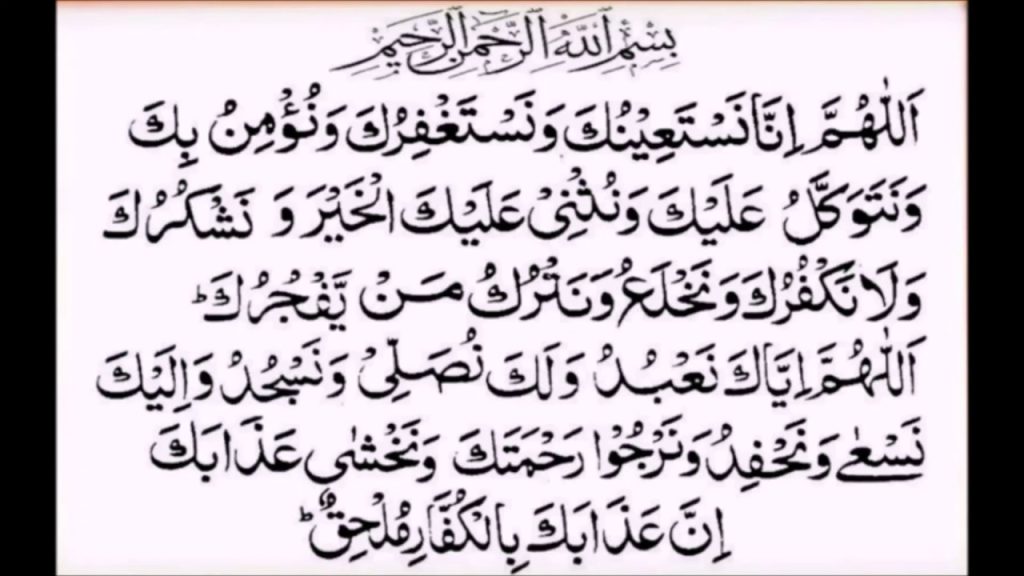 بِسْمِ اللّٰهِ الرَّحْمٰنِ الرَّحِيْمِ
اَللّٰهُمَّ اِنَّا نَسْتَعِيْنُكَ وَنَسْتَغْفِرُكَ وَنُؤْمِنُ بِكَ
وَنَتَوَكَّلُ عَلَيْكَ وَنُثْنِيْ عَلَيْكَ الْخَيْرَ وَ نَشْكُرُكَ
وَلَا نَكْفُرُكَ وَنَخْلَعُ وَنَتْرُكُ مَنْ يَّفْجُرُكَ ؕ
اَللّٰهُمَّ اِيَّاكَ نَعْبُدُ وَلَكَ نُصَلِّيْ وَنَسْجُدُ وَاِلَيْكَ
نَسْعٰى وَنَحْفِدُ وَنَرْجُوْا رَحْمَتَكَ وَنَخْشٰى عَذَابَكَ
اِنَّ عَذَابَكَ بِالْكُفَّارِ مُلْحِقٌ ؕ